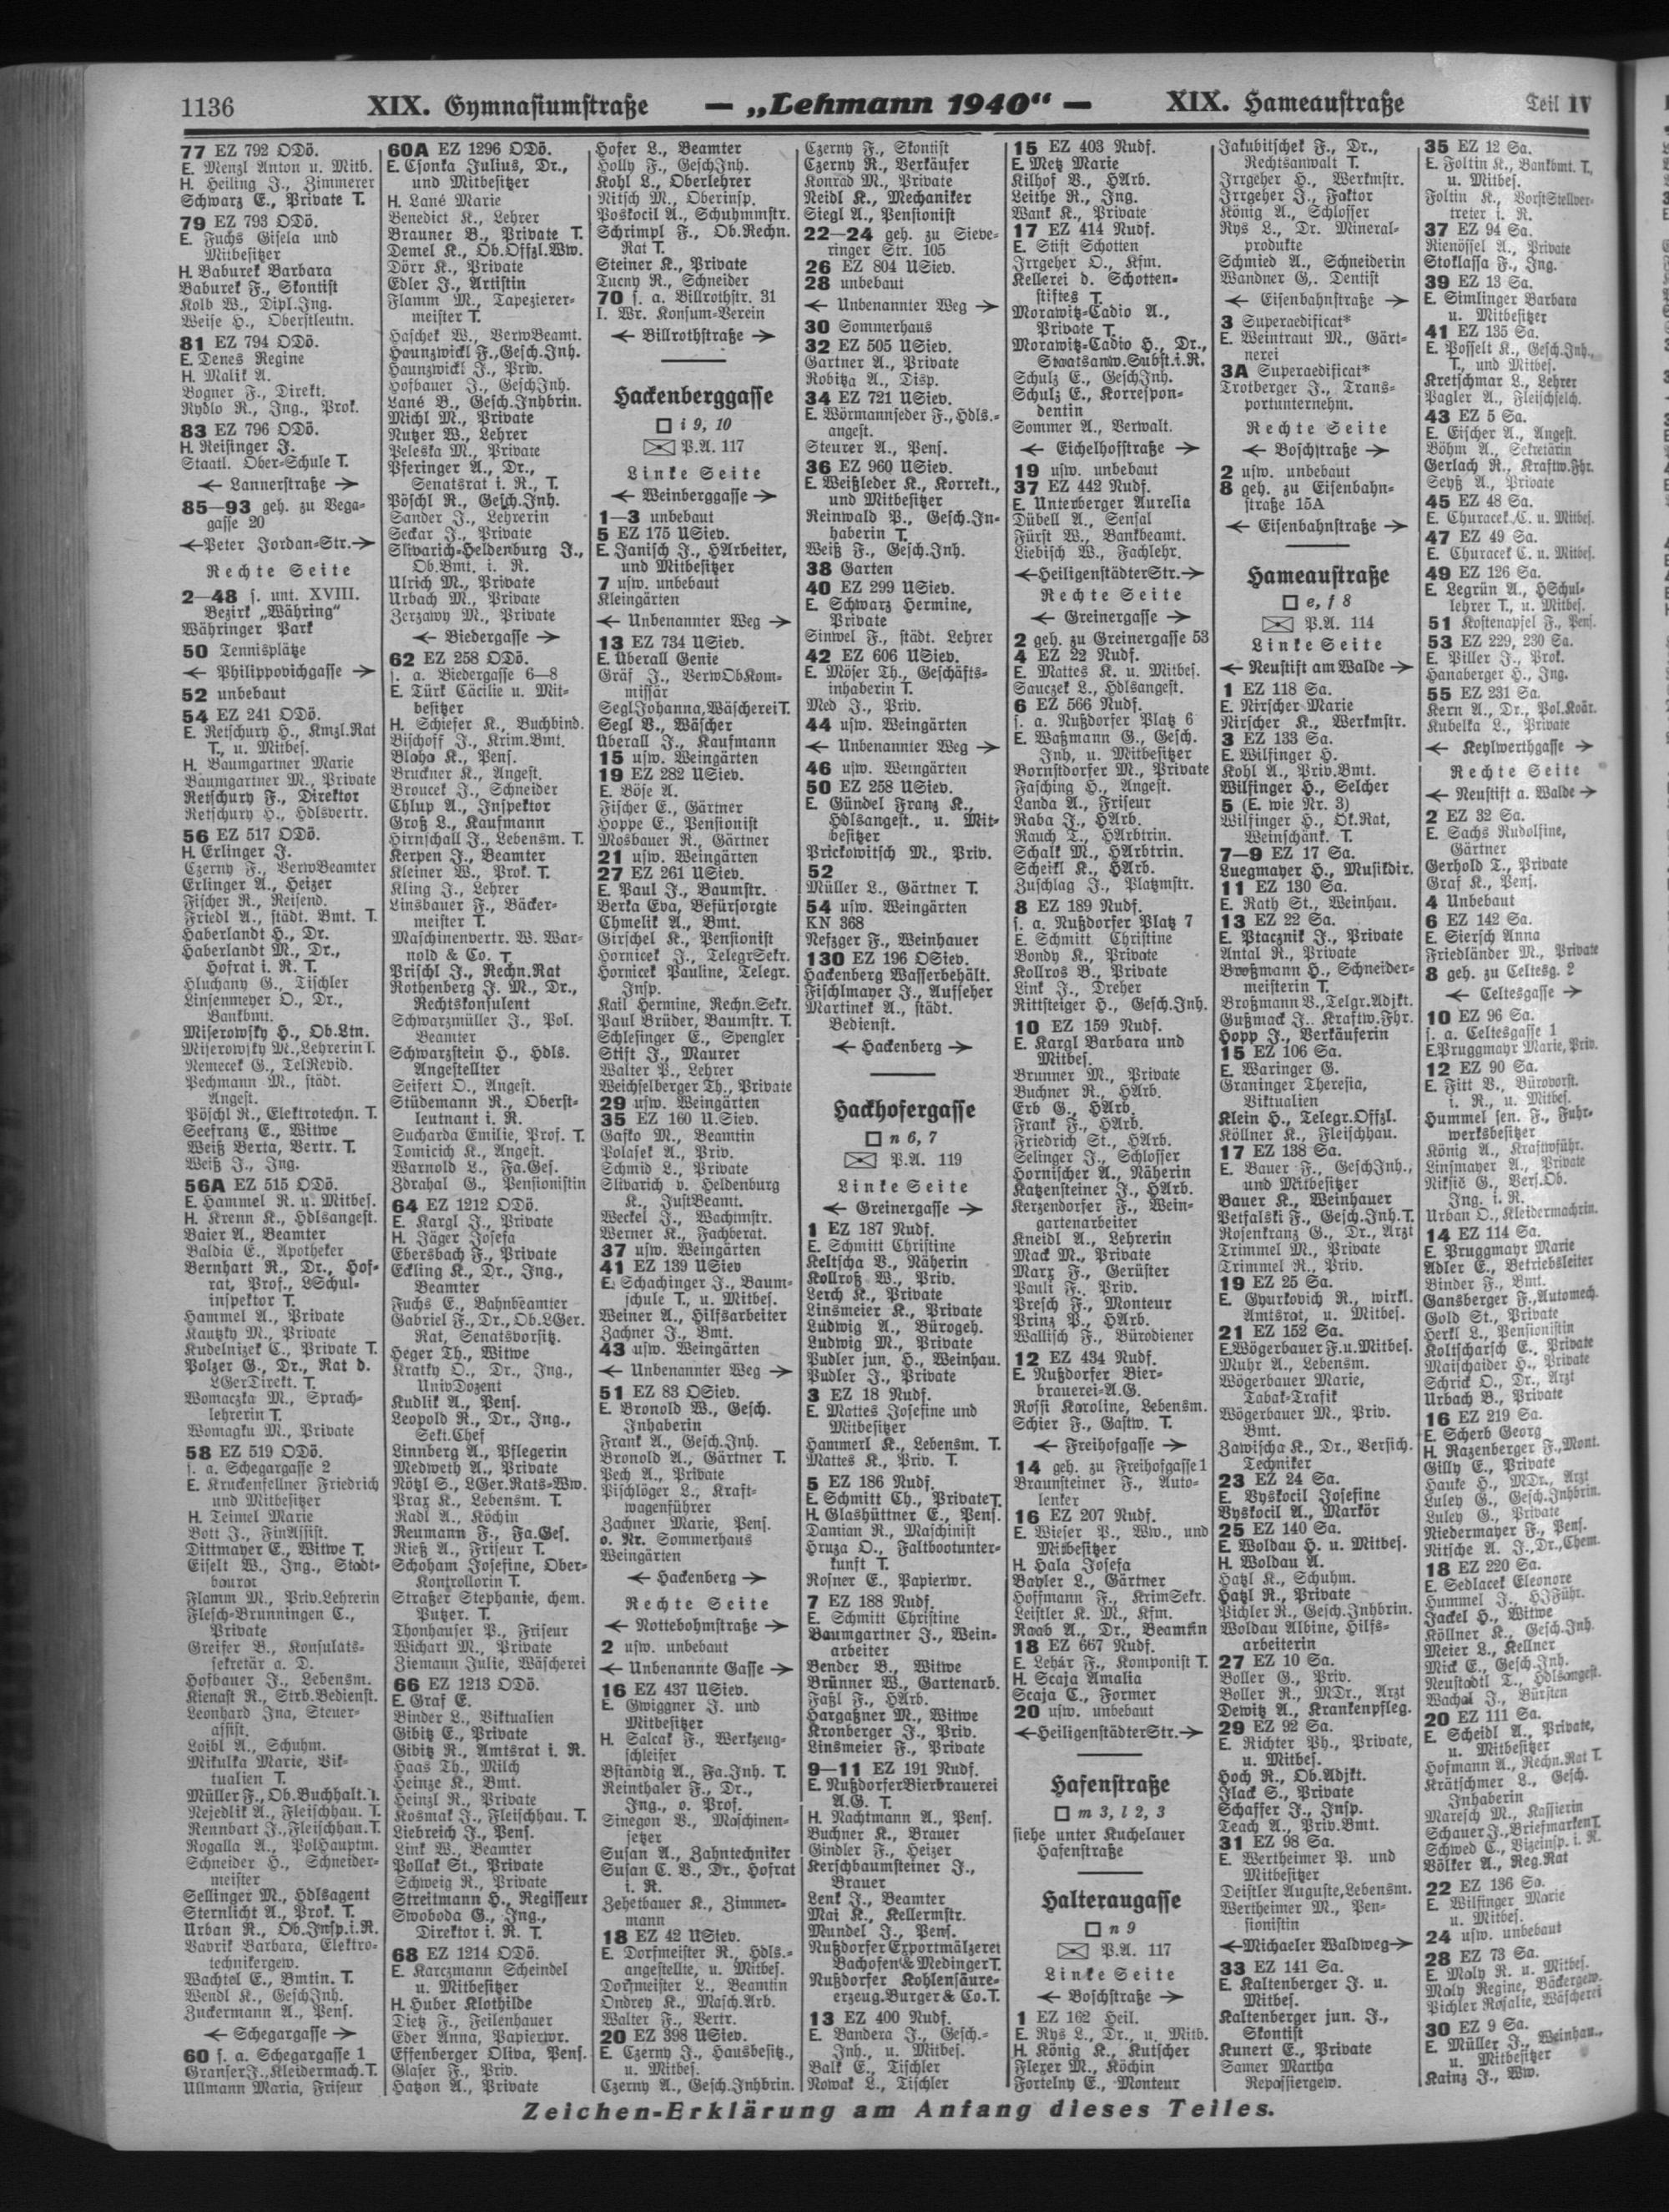 1136
XIX. Gymnasiumstraße
— „Lehmann 1940“ —
XIX. Hameaustraße
Teil IV
77 EZ 792 ODö.
E. Menzl Anton u. Mitb.
H. Heiling J., Zimmerer
Schwarz E., Private T.
79 EZ 793 ODö.
E. Fuchs Gisela und
Mitbesitzer
H. Baburek Barbara
Baburek F., Skontist
Kolb W., Dipl.Ing.
Weise H., Oberstleutn.
81 EZ 794 ODö.
E. Denes Regine
H. Malik A.
Bogner F., Direkt.
Rydlo R., Ing., Prok.
83 EZ 796 ODö.
H. Reisinger J.
Staatl. Ober-Schule T.
← Lannerstraße →
85—93 geh. zu Vega-
gasse 20
←Peter Jordan-Str.→
Rechte Seite
2—48 s. unt. XVIII.
Bezirk „Währing“
Währinger Park
50 Tennisplätze
← Philippovichgasse →
52 unbebaut
54 EZ 241 ODö.
E. Retschury H., Kmzl.Rat
T., u. Mitbes.
H. Baumgartner Marie
Baumgartner M., Private
Retschury F., Direktor
Retschury H., Hdlsvertr.
56 EZ 517 ODö.
H. Erlinger J.
Czerny F., VerwBeamter
Erlinger A., Heizer
Fischer R., Reisend.
Friedl A., städt. Bmt. T.
Haberlandt H., Dr.
Haberlandt M., Dr.,
Hofrat i. R. T.
Hluchany G., Tischler
Linsenmeyer O., Dr.,
Bankbmt.
Miserowsky H., Ob.Ltn.
Miserowsky M., Lehrerin T.
Nemecek G., TelRevid.
Pechmann M., städt.
Angest.
Pöschl R., Elektrotechn. T.
Seefranz E., Witwe
Weiß Berta, Vertr. T.
Weiß J., Ing.
56A EZ 515 ODö.
E. Hammel R. u. Mitbes.
H. Krenn K., Hdlsangest.
Baier A., Beamter
Baldia E., Apotheker
Bernhart R., Dr., Hof-
rat, Prof., LSchul-
inspektor T.
Hammel A., Private
Kautzky M., Private
Kudelnizek C., Private T.
Polzer G., Dr., Rat d.
LGerDirekt. T.
Womaczka M., Sprach-
lehrerin T.
Womagku M., Private
58 EZ 519 ODö.
s. a. Schegargasse 2
E. Kruckenfellner Friedrich
und Mitbesitzer
H. Teimel Marie
Bott J., FinAssist.
Dittmayer E., Witwe T.
Eiselt W., Ing., Stadt-
baurat
Flamm M., Priv.Lehrerin
Flesch-Brunningen C.,
Private
Greifer B., Konsulats-
sekretär a. D.
Hofbauer J., Lebensm.
Kienast R., Strb.Bedienst.
Leonhard Ina, Steuer-
assist.
Loibl A., Schuhm.
Mikulka Marie, Vik-
tualien T.
Müller F., Ob.Buchhalt. T.
Nejedlik A., Fleischhau. T.
Rennbart J., Fleischhau. T.
Rogalla A., PolHauptm.
Schneider H., Schneider-
meister
Sellinger M., Hdlsagent
Sternlicht A., Prok. T.
Urban R., Ob.Insp.i.R.
Vavrik Barbara, Elektro-
technikergew.
Wachtel E., Bmtin. T.
Wendl K., GeschInh.
Zuckermann A., Pens.
← Schegargasse →
60 s. a. Schegargasse 1
Granser J., Kleidermach. T.
Ullmann Maria, Friseur
60A EZ 1296 ODö.
E. Csonka Julius, Dr.,
und Mitbesitzer
H. Lané Marie
Benedict K., Lehrer
Brauner B., Private T.
Demel K., Ob.Offzl.Ww.
Dörr K., Private
Edler J., Artistin
Flamm M., Tapezierer-
meister T.
Haschek W., VerwBeamt.
Haunzwickl F., Gesch.Inh.
Haunzwickl J., Priv.
Hofbauer J., GeschInh.
Lané B., Gesch.Inhbrin.
Michl M., Private
Nutzer W., Lehrer
Peleska M., Private
Pferinger A., Dr.,
Senatsrat i. R., T.
Pöschl R., Gesch.Inh.
Sander J., Lehrerin
Seckar J., Private
Slivarich-Heldenburg J.,
Ob.Bmt. i. R.
Ulrich M., Private
Urbach M., Private
Zerzawy M., Private
← Biedergasse →
62 EZ 258 ODö.
s. a. Biedergasse 6—8
E. Türk Cäcilie u. Mit-
besitzer
H. Schiefer K., Buchbind.
Bischoff J., Krim.Bmt.
Blaha K., Pens.
Bruckner K., Angest.
Broucek J., Schneider
Chlup A., Inspektor
Groß L., Kaufmann
Hirnschall J., Lebensm. T.
Kerpen J., Beamter
Kleiner W., Prok. T.
Kling J., Lehrer
Linsbauer F., Bäcker-
meister T.
Maschinenvertr. W. War-
nold & Co. T.
Prischl J., Rechn.Rat
Rothenberg J. M., Dr.,
Rechtskonsulent
Schwarzmüller J., Pol.
Beamter
Schwarzstein H., Hdls.
Angestellter
Seifert O., Angest.
Stüdemann R., Oberst-
leutnant i. R.
Sucharda Emilie, Prof. T.
Tomicich K., Angest.
Warnold L., Fa.Ges.
Zdrahal G., Pensionistin
64 EZ 1212 ODö.
E. Kargl J., Private
H. Jäger Josefa
Ebersbach F., Private
Eckling K., Dr., Ing.,
Beamter
Fuchs E., Bahnbeamter
Gabriel F., Dr., Ob.LGer.
Rat, Senatsvorsitz.
Heger Th., Witwe
Kratky O., Dr., Ing.,
UnivDozent
Kudlik A., Pens.
Leopold R., Dr., Ing.,
Sekt.Chef
Linnberg A., Pflegerin
Medweth A., Private
Nötzl S., LGer.Rats-Ww.
Prax K., Lebensm. T.
Radl A., Köchin
Reumann F., Fa.Ges.
Rieß A., Friseur T.
Schoham Josefine, Ober-
Kontrollorin T.
Straßer Stephanie, chem.
Putzer. T.
Thonhauser P., Friseur
Wichart M., Private
Ziemann Julie, Wäscherei
66 EZ 1213 ODö.
E. Graf E.
Binder L., Viktualien
Gibitz E., Private
Gibitz R., Amtsrat i. R.
Haas Th., Milch
Heinze K., Bmt.
Heinzl R., Private
Kosmak J., Fleischhau. T.
Liebreich J., Pens.
Link W., Beamter
Pollak St., Private
Schweig R., Private
Streitmann H., Regisseur
Swoboda G., Ing.,
Direktor i. R. T.
68 EZ 1214 ODö.
E. Karczmann Scheindel
u. Mitbesitzer
H. Huber Klothilde
Dietz F., Feilenhauer
Eder Anna, Papierwr.
Effenberger Oliva, Pens.
Glaser F., Priv.
Hatzon A., Private
Hofer L., Beamter
Holly F., GeschInh.
Kohl L., Oberlehrer
Nitsch M., Oberinsp.
Poskocil A., Schuhmmstr.
Schrimpl F., Ob.Rechn.
Rat T.
Steiner K., Private
Tucny R., Schneider
70 s. a. Billrothstr. 31
I. Wr. Konsum-Verein
← Billrothstraße →
Hackenberggasse
i 9, 10
P.A. 117
Linke Seite
← Weinberggasse →
1—3 unbebaut
5 EZ 175 USiev.
E. Janisch J., HArbeiter,
und Mitbesitzer
7 usw. unbebaut
Kleingärten
← Unbenannter Weg →
13 EZ 734 USiev.
E. Überall Genie
Gräf J., VerwObKom-
missär
Segl Johanna, Wäscherei T.
Segl V., Wäscher
Überall J., Kaufmann
15 usw. Weingärten
19 EZ 282 USiev.
E. Böse A.
Fischer E., Gärtner
Hoppe E., Pensionist
Mosbauer R., Gärtner
21 usw. Weingärten
27 EZ 261 USiev.
E. Paul J., Baumstr.
Berka Eva, Befürsorgte
Chmelik A., Bmt.
Girschel K., Pensionist
Hornicek J., TelegrSekr.
Hornicek Pauline, Telegr.
Insp.
Kail Hermine, Rechn.Sekr.
Paul Brüder, Baumstr. T.
Schlesinger E., Spengler
Stift J., Maurer
Walter P., Lehrer
Weichselberger Th., Private
29 usw. Weingärten
35 EZ 160 U.Siev.
Gafko M., Beamtin
Polasek A., Priv.
Schmid L., Private
Slivarich v. Heldenburg
K., JustBeamt.
Weckel J., Wachtmstr.
Werner K., Fachberat.
37 usw. Weingärten
41 EZ 139 USiev
E. Schachinger J., Baum-
schule T., u. Mitbes.
Weiner A., Hilfsarbeiter
Zachner J., Bmt.
43 usw. Weingärten
← Unbenannter Weg →
51 EZ 83 OSiev.
E. Bronold W., Gesch.
Inhaberin
Frank A., Gesch.Inh.
Bronold A., Gärtner T.
Pech A., Private
Pischlöger L., Kraft-
wagenführer
Zachner Marie, Pens.
o. Nr. Sommerhaus
Weingärten
← Hackenberg →
Rechte Seite
← Nottebohmstraße →
2 usw. unbebaut
← Unbenannte Gasse →
16 EZ 437 USiev.
E. Gwiggner J. und
Mitbesitzer
H. Salcak F., Werkzeug-
schleifer
Bständig A., Fa.Inh. T.
Reinthaler F., Dr.,
Ing., o. Prof.
Sinegon V., Maschinen-
setzer
Susan A., Zahntechniker
Susan C. B., Dr., Hofrat
i. R.
Zehetbauer K., Zimmer-
mann
18 EZ 42 USiev.
E. Dorfmeister R., Hdls.-
angestellte, u. Mitbes.
Dorfmeister L., Beamtin
Ondrey K., Masch.Arb.
Walter F., Vertr.
20 EZ 398 USiev.
E. Czerny J., Hausbesitz.,
u. Mitbes.
Czerny A., Gesch.Inhbrin.
Czerny F., Skontist
Czerny R., Verkäufer
Konrad M., Private
Neidl K., Mechaniker
Siegl A., Pensionist
22—24 geh. zu Sieve-
ringer Str. 105
26 EZ 804 USiev.
28 unbebaut
← Unbenannter Weg →
30 Sommerhaus
32 EZ 505 USiev.
Gartner A., Private
Robitza A., Disp.
34 EZ 721 USiev.
E. Wörmannseder F., Hdls.-
angest.
Steurer A., Pens.
36 EZ 960 USiev.
E. Weißleder K., Korrekt.,
und Mitbesitzer
Reinwald P., Gesch.In-
haberin T.
Weiß F., Gesch.Inh.
38 Garten
40 EZ 299 USiev.
E. Schwarz Hermine,
Private
Sinwel F., städt. Lehrer
42 EZ 606 USiev.
E. Möser Th., Geschäfts-
inhaberin T.
Med J., Priv.
44 usw. Weingärten
← Unbenannter Weg →
46 usw. Weingärten
50 EZ 258 USiev.
E. Gündel Franz K.,
Hdlsangest., u. Mit-
besitzer
Prickowitsch M., Priv.
52
Müller L., Gärtner T.
54 usw. Weingärten
KN 368
Nefzger F., Weinhauer
130 EZ 196 OSiev.
Hackenberg Wasserbehält.
Fischlmayer J., Aufseher
Martinek A., städt.
Bedienst.
← Hackenberg →
Hackhofergasse
n 6, 7
P.A. 119
Linke Seite
← Greinergasse →
1 EZ 187 Nudf.
E. Schmitt Christine
Keltscha V., Näherin
Kollroß W., Priv.
Lerch K., Private
Linsmeier K., Private
Ludwig A., Bürogeh.
Ludwig M., Private
Pudler jun. H., Weinhau.
Pudler J., Private
3 EZ 18 Nudf.
E. Mattes Josefine und
Mitbesitzer
Hammerl K., Lebensm. T.
Mattes K., Priv. T.
5 EZ 186 Nudf.
E. Schmitt Ch., Private T.
H. Glashüttner E., Pens.
Damian R., Maschinist
Hruza O., Faltbootunter-
kunft T.
Rosner E., Papierwr.
7 EZ 188 Nudf.
E. Schmitt Christine
Baumgartner J., Wein-
arbeiter
Bender B., Witwe
Brünner W., Gartenarb.
Faßl F., HArb.
Hargaßner M., Witwe
Kronberger J., Priv.
Linsmeier F., Private
9—11 EZ 191 Nudf.
E. Nußdorfer Bierbrauerei
A.G. T.
H. Nachtmann A., Pens.
Buchner K., Brauer
Gindler F., Heizer
Kerschbaumsteiner J.,
Brauer
Lenk J., Beamter
Mai K., Kellermstr.
Mundel J., Pens.
Nußdorfer Exportmälzerei
Bachofen & Medinger T.
Nußdorfer Kohlensäure-
erzeug. Burger & Co. T.
13 EZ 400 Nudf.
E. Bandera J., Gesch.-
Inh., u. Mitbes.
Balk E., Tischler
Nowak L., Tischler
15 EZ 403 Nudf.
E. Metz Marie
Kilhof V., HArb.
Leithe R., Ing.
Wank K., Private
17 EZ 414 Nudf.
E. Stift Schotten
Irrgeher O., Kfm.
Kellerei d. Schotten-
stiftes T.
Morawitz-Cadio A.,
Private T.
Morawitz-Cadio H., Dr.,
Staatsanw.Subst.i.R.
Schulz E., GeschInh.
Schulz E., Korrespon-
dentin
Sommer A., Verwalt.
← Eichelhofstraße →
19 usw. unbebaut
37 EZ 442 Nudf.
E. Unterberger Aurelia
Dübell A., Sensal
Fürst W., Bankbeamt.
Liebisch W., Fachlehr.
←Heiligenstädter Str.→
Rechte Seite
← Greinergasse →
2 geh. zu Greinergasse 53
4 EZ 22 Nudf.
E. Mattes K. u. Mitbes.
Sauczek L., Hdlsangest.
6 EZ 566 Nudf.
s. a. Nußdorfer Platz 6
E. Waßmann G., Gesch.
Inh, u. Mitbesitzer
Bornstdorfer M., Private
Fasching H., Angest.
Landa A., Friseur
Raba J., HArb.
Rauch T., HArbtrin.
Schalk M., HArbtrin.
Scheikl K., HArb.
Zuschlag J., Platzmstr.
8 EZ 189 Nudf.
s. a. Nußdorfer Platz 7
E. Schmitt Christine
Bondy K., Private
Kollros B., Private
Link J., Dreher
Rittsteiger H., Gesch.Inh.
10 EZ 159 Nudf.
E. Kargl Barbara und
Mitbes.
Brunner M., Private
Buchner R., HArb.
Erb G., HArb.
Frank F., HArb.
Friedrich St., HArb.
Selinger J., Schlosser
Hornischer A., Näherin
Katzensteiner J., HArb.
Kerzendorfer F., Wein-
gartenarbeiter
Kneidl A., Lehrerin
Mack M., Private
Marx F., Gerüster
Pauli F., Priv.
Presch F., Monteur
Prinz P., HArb.
Wallisch F., Bürodiener
12 EZ 434 Nudf.
E. Nußdorfer Bier-
brauerei-A.G.
Rossi Karoline, Lebensm.
Schier F., Gastw. T.
← Freihofgasse →
14 geh. zu Freihofgasse 1
Braunsteiner F., Auto-
lenker
16 EZ 207 Nudf.
E. Wieser P., Ww., und
Mitbesitzer
H. Hala Josefa
Bayler L., Gärtner
Hoffmann F., KrimSekr.
Leistler K. M., Kfm.
Raab A., Dr., Beamtin
18 EZ 667 Nudf.
E. Lehár F., Komponist T.
H. Scaja Amalia
Scaja C., Former
20 usw. unbebaut
←Heiligenstädter Str.→
Hafenstraße
m 3, l 2, 3
siehe unter Kuchelauer
Hafenstraße
Halteraugasse
n 9
P.A. 117
Linke Seite
← Boschstraße →
1 EZ 162 Heil.
E. Rys L., Dr., u. Mitb.
H. König K., Kutscher
Flexer M., Köchin
Fortelny E., Monteur
Jakubitschek F., Dr.,
Rechtsanwalt T.
Irrgeher H., Werkmstr.
Irrgeher J., Faktor
König A., Schlosser
Rys L., Dr. Mineral-
produkte
Schmied A., Schneiderin
Wandner G., Dentist
← Eisenbahnstraße →
3 Superaedificat*
E. Weintraut M., Gärt-
nerei
3A Superaedificat*
Trotberger J., Trans-
portunternehm.
Rechte Seite
← Boschstraße →
2 usw. unbebaut
8 geh. zu Eisenbahn-
straße 15A
← Eisenbahnstraße →
Hameaustraße
e, f 8
P.A. 114
Linke Seite
← Neustift am Walde →
1 EZ 118 Sa.
E. Nirscher Marie
Nirscher K., Werkmstr.
3 EZ 133 Sa.
E. Wilfinger H.
Kohl A., Priv.Bmt.
Wilfinger H., Selcher
5 (E. wie Nr. 3)
Wilfinger H., Ök.Rat,
Weinschänk. T.
7—9 EZ 17 Sa.
Luegmayer H., Musikdir.
11 EZ 130 Sa.
E. Rath St., Weinhau.
13 EZ 22 Sa.
E. Ptacznik J., Private
Antal R., Private
Broßmann H., Schneider-
meisterin T.
Broßmann V., Telgr.Adjkt.
Gußmack J., Kraftw.Fhr.
Hopp J., Verkäuferin
15 EZ 106 Sa.
E. Waringer G.
Graninger Theresia,
Viktualien
Klein H., Telegr.Offzl.
Köllner K., Fleischhau.
17 EZ 138 Sa.
E. Bauer F., GeschInh.,
und Mitbesitzer
Bauer K., Weinhauer
Petfalski F., Gesch.Inh. T.
Rosenkranz G., Dr., Arzt
Trimmel M., Private
Trimmel R., Priv.
19 EZ 25 Sa.
E. Gyurkovich R., wirkl.
Amtsrat, u. Mitbes.
21 EZ 152 Sa.
E. Wögerbauer F. u. Mitbes.
Muhr A., Lebensm.
Wögerbauer Marie,
Tabak-Trafik
Wögerbauer M., Priv.
Bmt.
Zawischa K., Dr., Versich.
Techniker
23 EZ 24 Sa.
E. Vyskocil Josefine
Vyskocil A., Markör
25 EZ 140 Sa.
E. Woldau H. u. Mitbes.
H. Woldau A.
Hatzl K., Schuhm.
Hatzl R., Private
Pichler R., Gesch.Inhbrin.
Woldau Albine, Hilfs-
arbeiterin
27 EZ 10 Sa.
Boller G., Priv.
Boller R., MDr., Arzt
Dewitz A., Krankenpfleg.
29 EZ 92 Sa.
E. Richter Ph., Private,
u. Mitbes.
Hoch R., Ob.Adjkt.
Jlack S., Private
Schaffer J., Insp.
Teach A., Priv.Bmt.
31 EZ 98 Sa.
E. Wertheimer P. und
Mitbesitzer
Deistler Auguste, Lebensm.
Wertheimer M., Pen-
sionistin
←Michaeler Waldweg→
33 EZ 141 Sa.
E. Kaltenberger J. u.
Mitbes.
Kaltenberger jun. J.,
Skontist
Kunert E., Private
Samer Martha
Repassiergew.
35 EZ 12 Sa.
E. Foltin K., Bankbmt. T.,
u. Mitbes.
Foltin K., VorstStellver-
treter i. R.
37 EZ 94 Sa.
Rienössel A., Private
Stoklassa F., Ing.
39 EZ 13 Sa.
E. Simlinger Barbara
u. Mitbesitzer
41 EZ 135 Sa.
E. Posselt K., Gesch.Inh.,
T., und Mitbes.
Kretschmar L., Lehrer
Pagler A., Fleischselch.
43 EZ 5 Sa.
E. Eischer A., Angest.
Böhm A., Sekretärin
Gerlach R., Kraftw.Fhr.
Seyß A., Private
45 EZ 48 Sa.
E. Churacek C. u. Mitbes.
47 EZ 49 Sa.
E. Churacek C. u. Mitbes.
49 EZ 126 Sa.
E. Legrün A., HSchul-
lehrer T., u. Mitbes.
51 Kostenapfel F., Pens.
53 EZ 229, 230 Sa.
E. Piller J., Prok.
Hanaberger H., Ing.
55 EZ 231 Sa.
Kern A., Dr., Pol.Koär.
Kubelka L., Private
← Keylwerthgasse →
Rechte Seite
← Neustift a. Walde →
2 EZ 32 Sa.
E. Sachs Rudolfine,
Gärtner
Gerhold T., Private
Graf K., Pens.
4 Unbebaut
6 EZ 142 Sa.
E. Siersch Anna
Friedländer M., Private
8 geh. zu Celtesg. 2
← Celtesgasse →
10 EZ 96 Sa.
s. a. Celtesgasse 1
E. Pruggmayr Marie, Priv.
12 EZ 90 Sa.
E. Fitt V., Bürovorst.
i. R., u. Mitbes.
Hummel sen. F., Fuhr-
werksbesitzer
König A., Kraftwführ.
Linsmayer A., Private
Niksić G., Vers.Ob.
Ing. i. R.
Urban O., Kleidermachrin.
14 EZ 114 Sa.
E. Pruggmayr Marie
Adler E., Betriebsleiter
Binder F., Bmt.
Gansberger F., Automech.
Gold St., Private
Herkl L., Pensionistin
Koltscharsch E., Private
Maischaider H., Private
Schrick O., Dr., Arzt
Urbach B., Private
16 EZ 219 Sa.
E. Scherb Georg
H. Razenberger F., Mont.
Gilly E., Private
Hauke H., MDr., Arzt
Luley G., Gesch.Inhbrin.
Luley G., Private
Niedermayer F., Pens.
Nitsche A. J., Dr., Chem.
18 EZ 220 Sa.
E. Sedlacek Eleonore
Hummel J., HJFühr.
Jackel H., Witwe
Köllner K., Gesch.Inh.
Meier L., Kellner
Mick E., Gesch.Inh.
Neustadtl T., Hdlsangest.
Wachal J., Bürsten
20 EZ 111 Sa.
E. Scheidl A., Private,
u. Mitbesitzer
Hofmann A., Rechn.Rat T.
Krätschmer L., Gesch.
Inhaberin
Maresch M., Kassierin
Schauer J., Briefmarken T.
Schwed C., Vizeinsp. i. R.
Völker A., Reg.Rat
22 EZ 136 Sa.
E. Wilfinger Marie
u. Mitbes.
24 usw. unbebaut
28 EZ 73 Sa.
E. Maly R. u. Mitbes.
Maly Regine, Bäckergew.
Pichler Rosalie, Wäscherei
30 EZ 9 Sa.
E. Müller J., Weinhau.,
u. Mitbesitzer
Kainz J., Ww.
Zeichen-Erklärung am Anfang dieses Teiles.